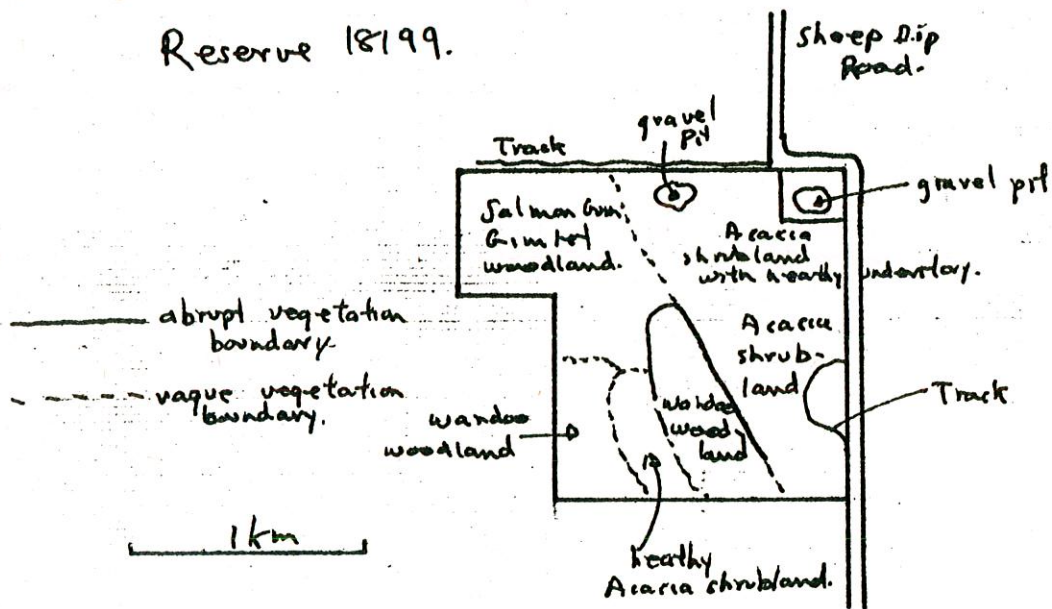 Reserve 18199.
Sheep Dip
Road.
gravel
pit
Track
gravel pit
Salmon Gum
Gimlet
woodland.
Acacia
shrubland
with heathy understory.
abrupt vegetation
boundary
Acacia
shrub-
land
vague vegetation
boundary.
Track
wandoo
woodland
wandoo
wood
land
1 km
heathy
Acacia shrubland.